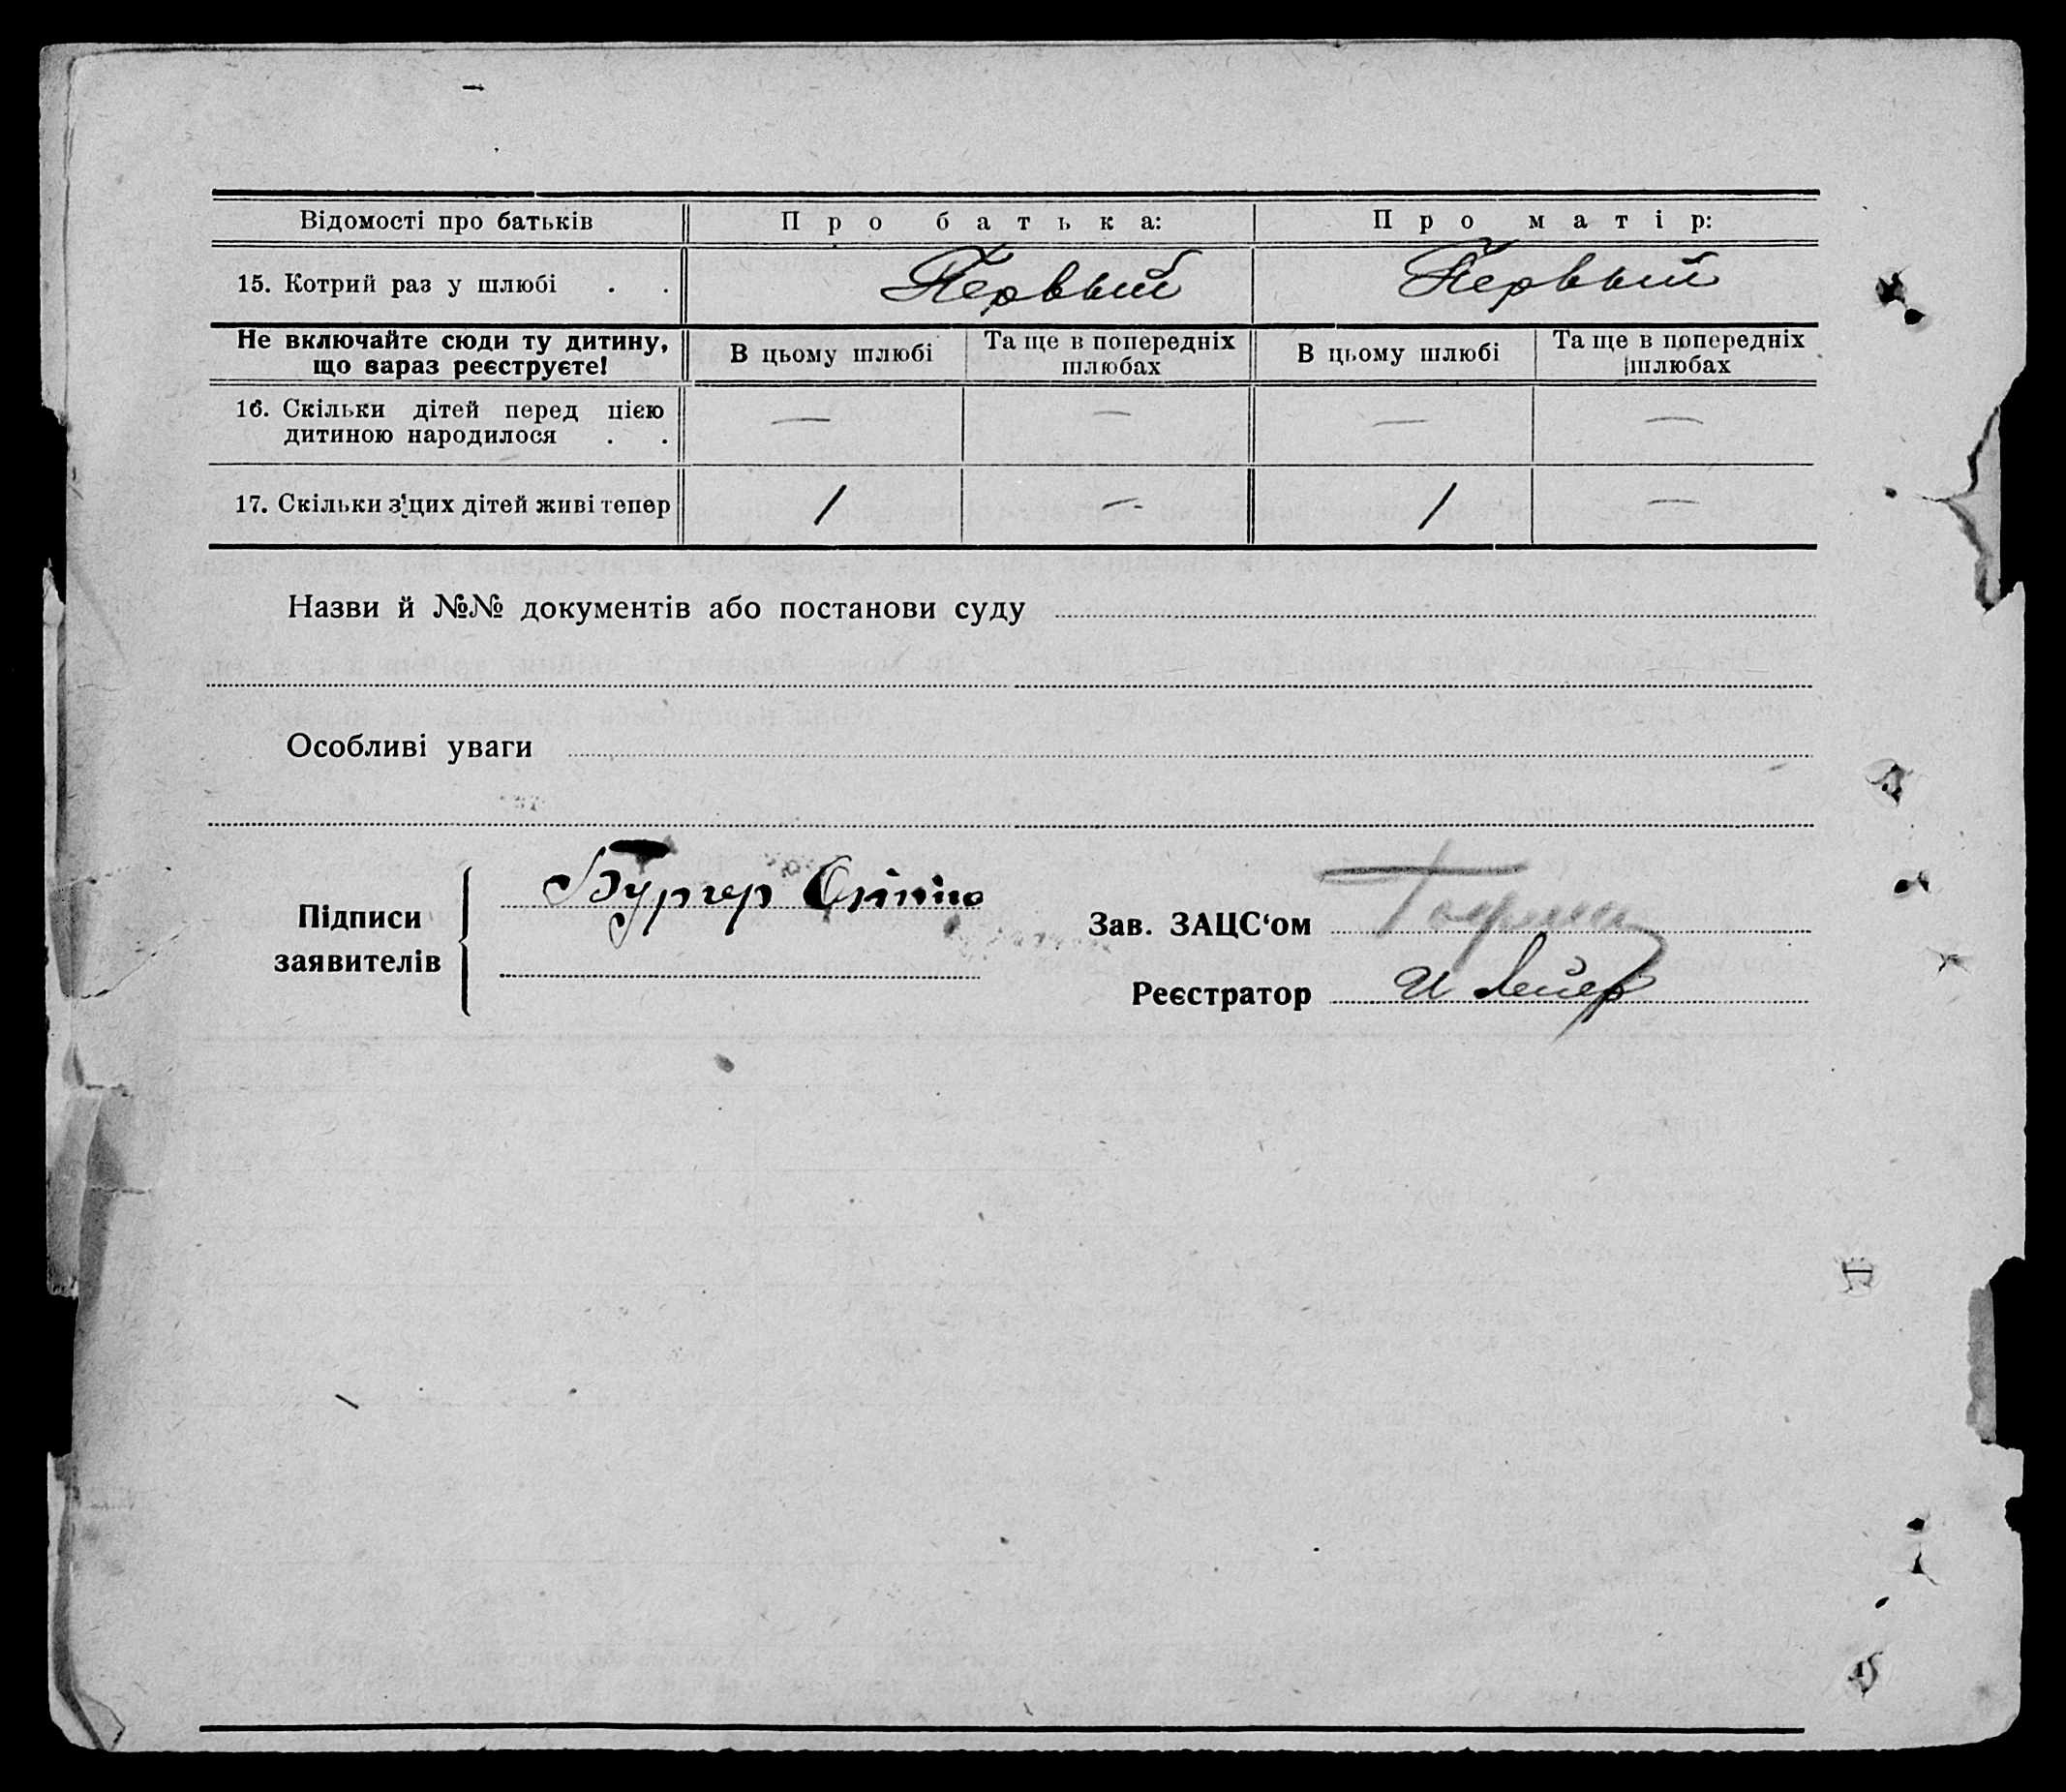 Відомості про батьків Про батька: Про матір:
15. Котрий раз у шлюбі . . Первый Первый
Не включайте сюди ту дитину, що зараз реєструєте! В цьому шлюбі Та ще в попередніх шлюбах В цьому шлюбі Та ще в попередніх шлюбах
16. Скільки дітей перед цією
дитиною народилося . . — — — —
17. Скільки з цих дітей живі тепер 1 — 1 —
Назви й №№ документів або постанови суду
Особливі уваги
Підписи заявителів Бургер
Зав. ЗАЦС‘ом
Реєстратор И